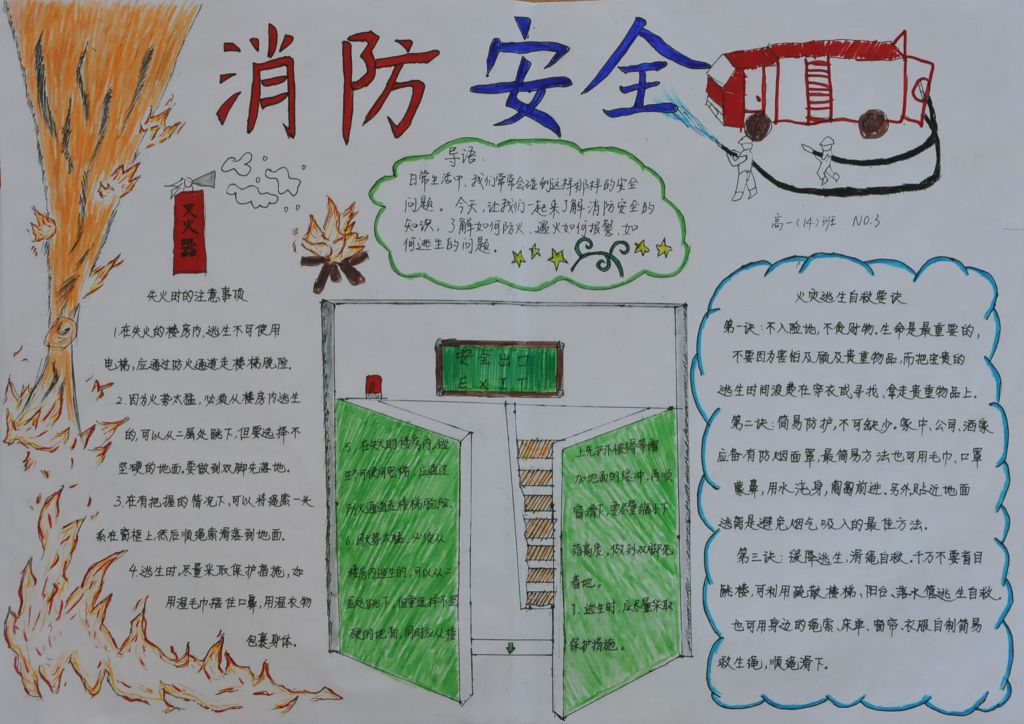 消防安全
导语:
日常生活中,我们常常会碰到这样那样的安全
问题。今天,让我们一起来了解消防安全的
知识,了解如何防火,遇火如何报警,如
何逃生的问题。
高一(14)班 NO.3
灭火器
失火时的注意事项
1.在失火的楼房内,逃生不可使用
电梯,应通过防火通道走楼梯脱险。
2.因为火势太猛,必须从楼房内逃生
的,可以从二层处跳下,但要选择不
坚硬的地面,要做到双脚先落地。
3.在有把握的情况下,可以将绳索一头
系在窗框上,然后顺绳索滑落到地面。
4.逃生时,尽量采取保护措施,如
用湿毛巾捂住口鼻,用湿衣物
包裹身体。
安全出口
EXIT
5.在失火的楼房内,逃
生不可使用电梯,应通过
防火通道走楼梯脱险。
6.因火势太猛,必须从
楼房内逃生的,可以从二
层处跳下,但要选择不坚
硬的地面,同时应从楼
上先扔下被褥等增
加地面的缓冲,再顺
窗滑下,要尽量缩小下
落高度,做到双脚先
着地。
7.逃生时,应尽量采取
保护措施。
火灾逃生自救要诀
第一诀:不入险地,不贪财物.生命是最重要的,
不要因为害怕及顾及贵重物品,而把宝贵的
逃生时间浪费在穿衣或寻找、拿走贵重物品上.
第二诀:简易防护,不可缺少。家中、公司、酒家
应备有防烟面罩,最简易方法也可用毛巾、口罩
蒙鼻,用水浇身,匍匐前进.另外贴近地面
逃离是避免烟气吸入的最佳方法。
第三诀:缓降逃生,滑绳自救。千万不要盲目
跳楼,可利用疏散楼梯、阳台、落水管逃生自救。
也可用身边的绳索、床单、窗帘、衣服自制简易
救生绳,顺绳滑下。